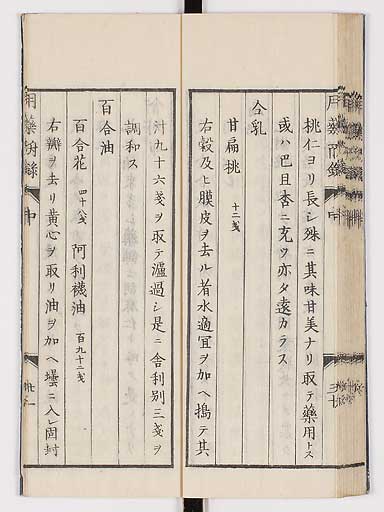 桃仁ヨリ長シ殊ニ其味甘美ナリ取テ藥用トス
或ハ巴且杏ニ充ツ亦タ遠カラス
合乳
甘扁桃 十二戔
右殼及ヒ膜皮ヲ去ル者水適宜ヲ加ヘ搗テ其
汁九十六戔ヲ取テ濾過シ是ニ舎利別三戔ヲ
調和ス
百合油
百合花 四十八戔 阿利襪油 百九十二戔
右瓣ヲ去リ黄心ヲ取リ油ヲ加ヘ壜ニ入レ固封